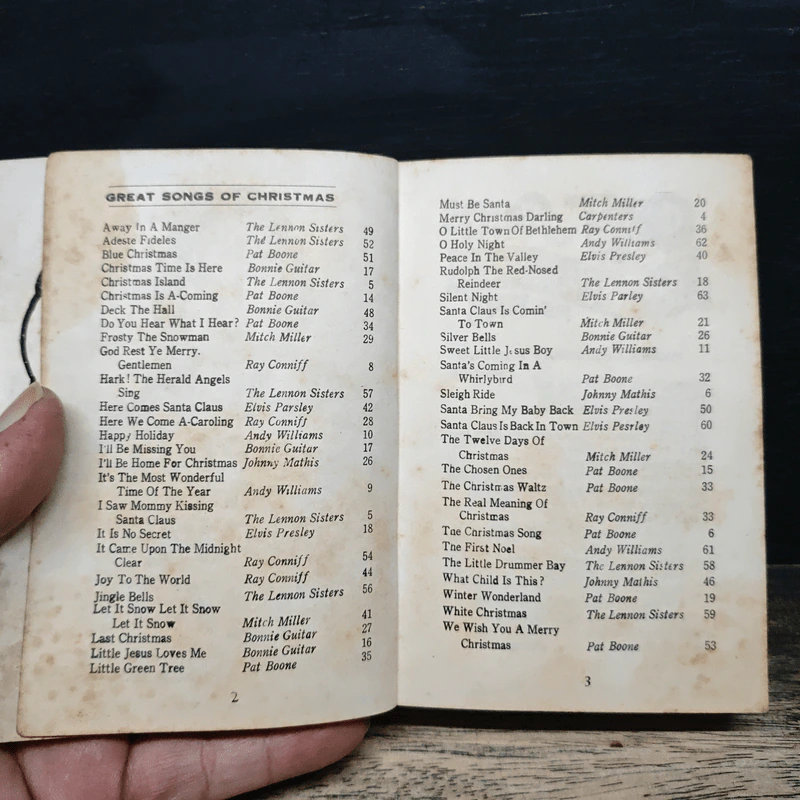 GREAT SONGS OF CHRISTMAS
Away In A Manger The Lennon Sisters 49
Adeste Fideles The Lennon Sisters 52
Blue Christmas Pat Boone 51
Christmas Time Is Here Bonnie Guitar 17
Christmas Island The Lennon Sisters 5
Christmas Is A-Coming Pat Boone 14
Deck The Hall Bonnie Guitar 48
Do You Hear What I Hear? Pat Boone 34
Frosty The Snowman Mitch Miller 29
God Rest Ye Merry.
Gentlemen Ray Conniff 8
Hark! The Herald Angels
Sing The Lennon Sisters 57
Here Comes Santa Claus Elvis Parsley 42
Here We Come A-Caroling Ray Conniff 28
Happy Holiday Andy Williams 10
I'll Be Missing You Bonnie Guitar 17
I'll Be Home For Christmas Johnny Mathis 26
It's The Most Wonderful
Time Of The Year Andy Williams 9
I Saw Mommy Kissing
Santa Claus The Lennon Sisters 5
It Is No Secret Elvis Presley 18
It Came Upon The Midnight
Clear Ray Conniff 54
Joy To The World Ray Conniff 44
Jingle Bells The Lennon Sisters 56
Let It Snow Let It Snow
Let It Snow Mitch Miller 41
Last Christmas Bonnie Guitar 27
Little Jesus Loves Me Bonnie Guitar 16
Little Green Tree Pat Boone 35
2
Must Be Santa Mitch Miller 20
Merry Christmas Darling Carpenters 4
O Little Town Of Bethlehem Ray Conniff 36
O Holy Night Andy Williams 62
Peace In The Valley Elvis Presley 40
Rudolph The Red-Nosed
Reindeer The Lennon Sisters 18
Silent Night Elvis Parley 63
Santa Claus Is Comin'
To Town Mitch Miller 21
Silver Bells Bonnie Guitar 26
Sweet Little Jesus Boy Andy Williams 11
Santa's Coming In A
Whirlybird Pat Boone 32
Sleigh Ride Johnny Mathis 6
Santa Bring My Baby Back Elvis Presley 50
Santa Claus Is Back In Town Elvis Pesrley 60
The Twelve Days Of
Christmas Mitch Miller 24
The Chosen Ones Pat Boone 15
The Christmas Waltz Pat Boone 33
The Real Meaning Of
Christmas Ray Conniff 33
The Christmas Song Pat Boone 6
The First Noel Andy Williams 61
The Little Drummer Bay The Lennon Sisters 58
What Child Is This? Johnny Mathis 46
Winter Wonderland Pat Boone 19
White Christmas The Lennon Sisters 59
We Wish You A Merry
Christmas Pat Boone 53
3